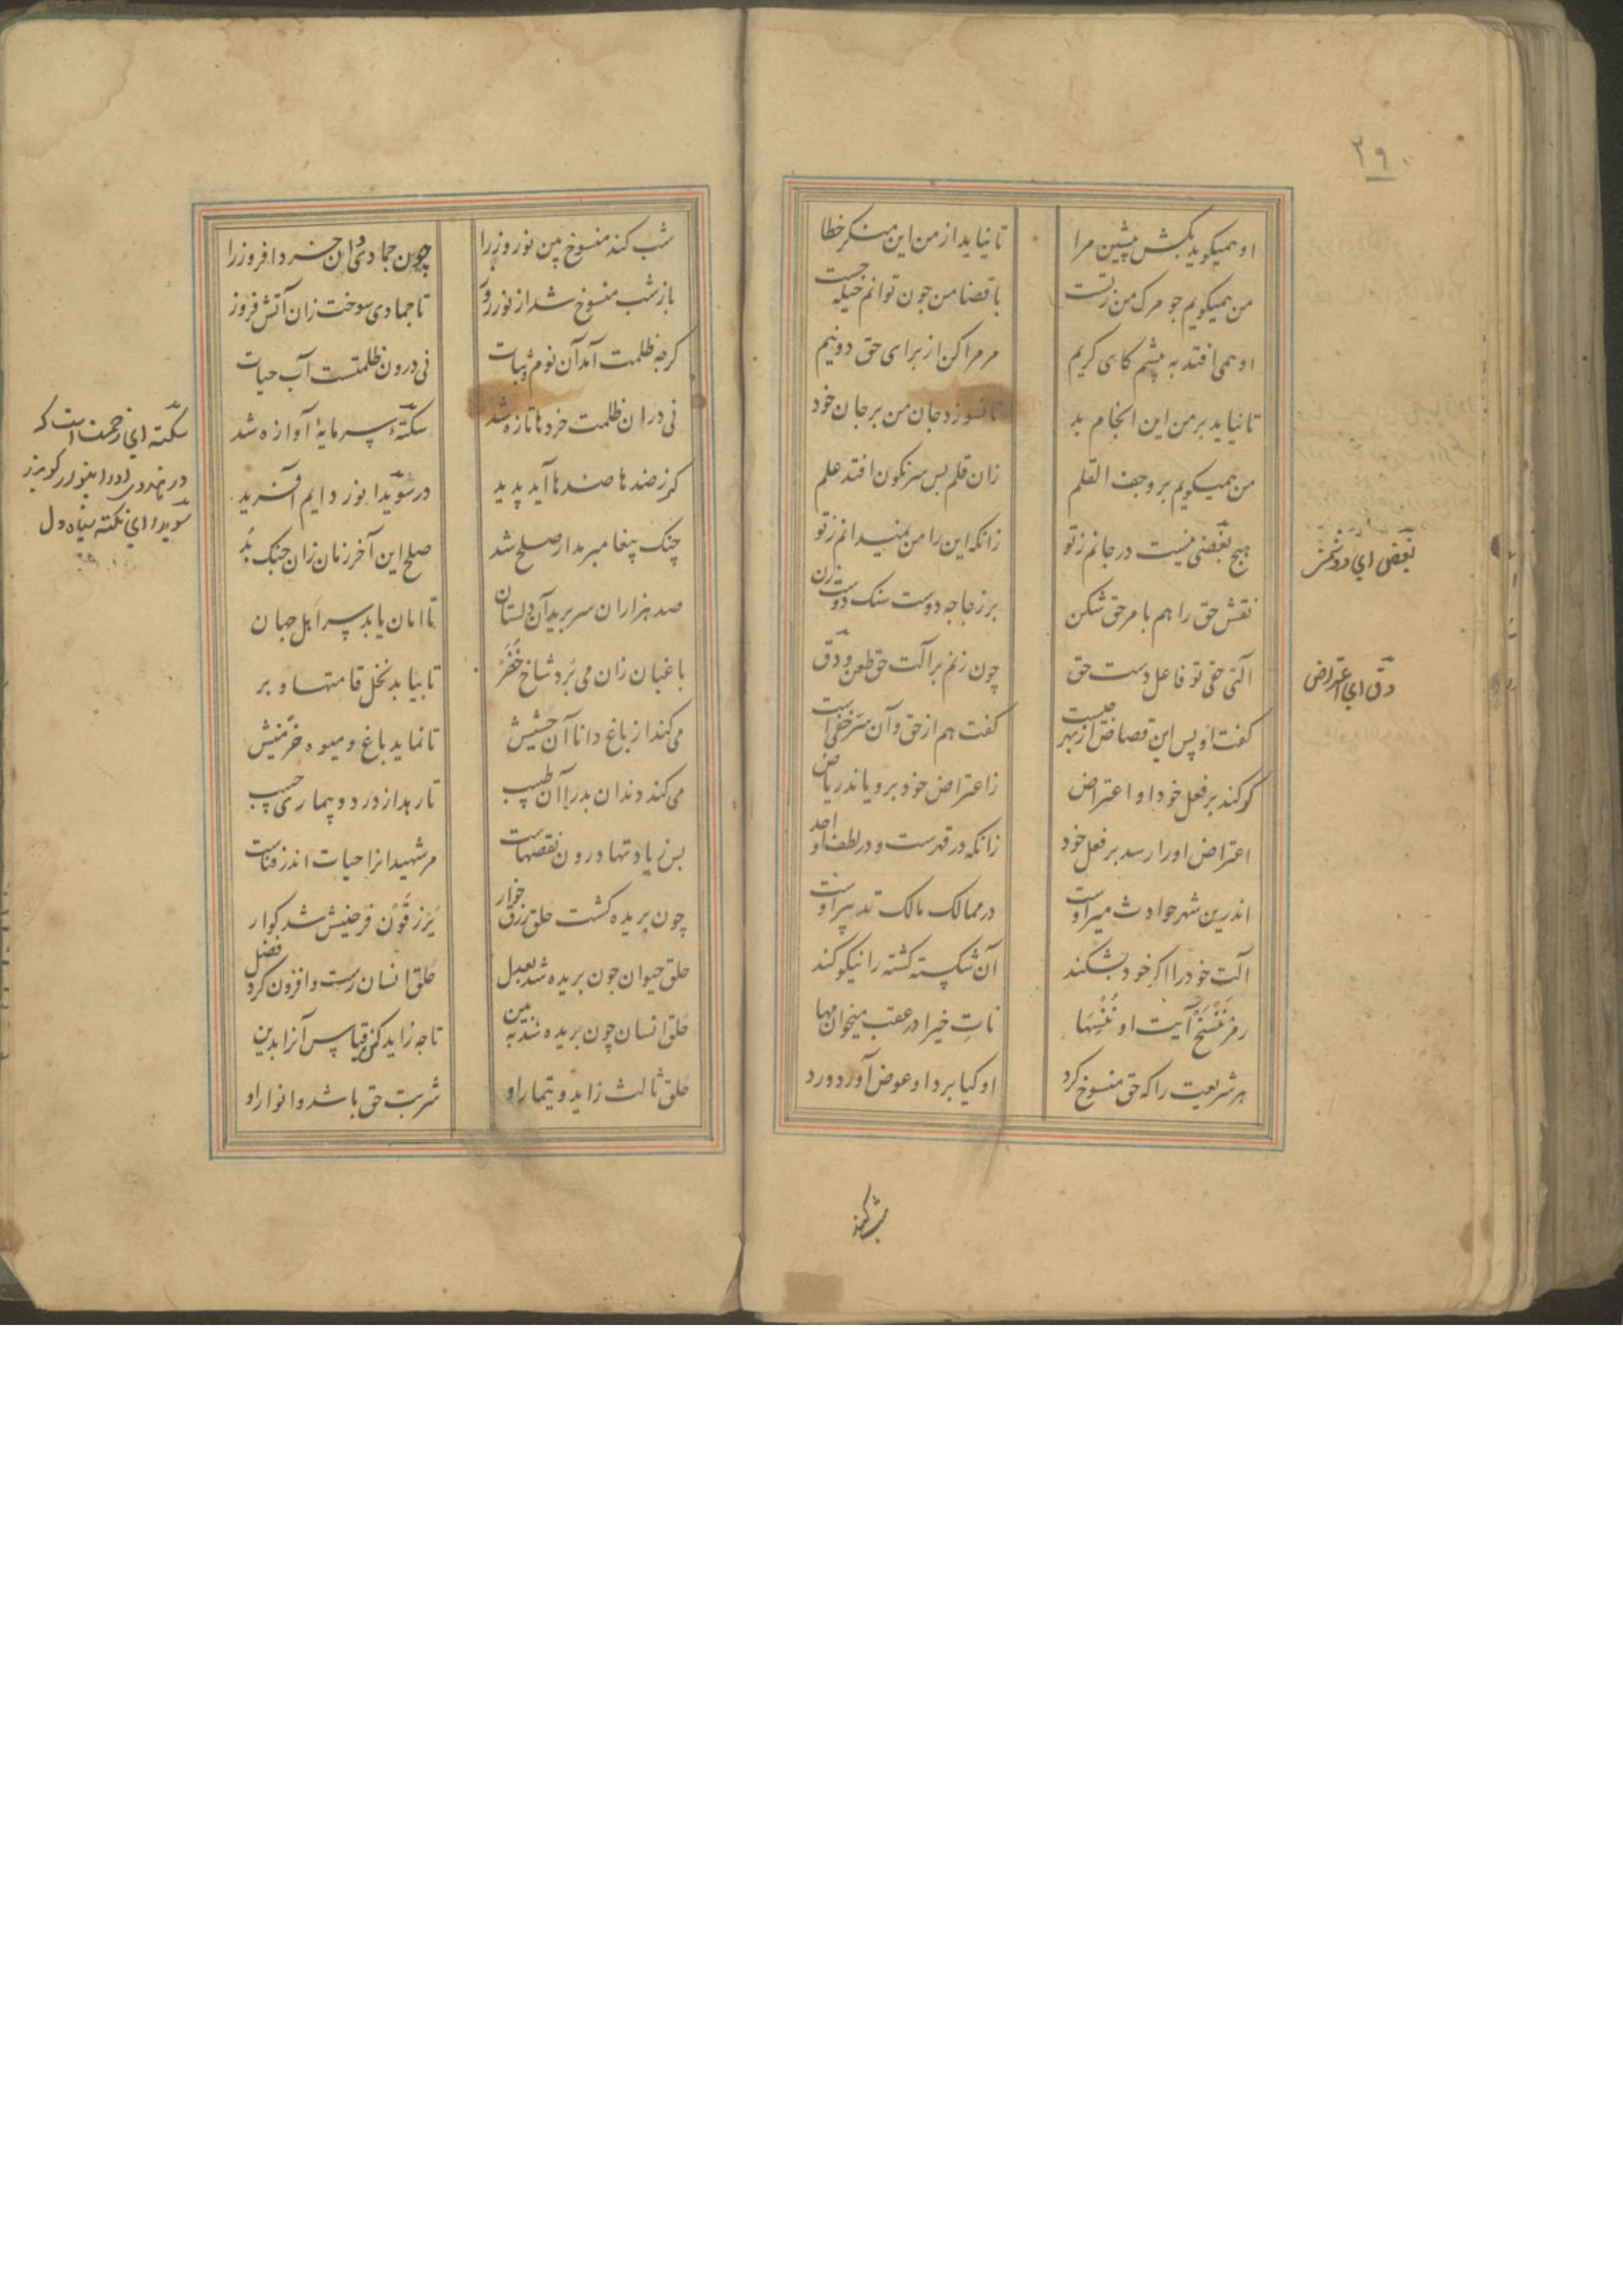 ۲۹۰
او همیکوید بکش پیشین مرا تا نیاید از من این منکر خطا
من همیکویم جو مرک من زتست با قضا من جون توانم حیله جست
او همی افتد به پیشم کای کریم مر مرا کن از برای حق دو نیم
تا نیاید بر من این انجام بد تا نسوزد جان من بر جان خود
من همیکویم برو جف القلم زان قلم بس سرنکون افتد علم
هیچ بغضی نیست در جانم زتو زانکه این را من نمیدانم زتو
نقش حق را هم بامر حق شکن بر زجاجه دوست سنک دوست زن
آلت حقی تو فاعل دست حق چون زنم بر آلت حق طعن و دق
کفت او پس این قصاص از بهر جیست کفت هم از حق و آن سر خفی است
کو کند بر فعل خود او اعتراض زاعتراض خود برویاند ریاض
اعتراض او را رسد بر فعل خود زانکه در قهرست و در لطف او احد
اندرین شهر حوادث میر اوست در ممالک مالک تدبیر اوست
آلت خود را اکر خود بشکند آن شکسته کشته را نیکو کند
رمز ننسخ آیت او ننسها نات خیرا در عقب میخوان مها
هر شریعت را که حق منسوخ کرد او کیا برد او عوض آورد ورد
بغض ای دوشمن
دق ای اعتراض
شب کند
شب کند منسوخ بین نور روز را چون جمادی دان خرد افروز را
باز شب منسوخ شد از نور روز تا جمادی سوخت زان آتش فروز
کرجه ظلمت آمد آن نوم و ثبات نی درون ظلمتست آب حیات
نی دران ظلمت خردها تازه شد سکته سرمایهٔ آوازه شد
کز ضدها ضدها آید پدید در سویدا نور دایم آفرید
جنک پیغامبر مدار صلح شد صلح این آخر زمان زان جنک بد
صد هزاران سر برید آن دلستان تا امان یابد سر اهل جهان
باغبان زان می برد شاخ خضر تا بیابد نخل قامتها و بر
می کند از باغ دانا آن حشیش تا نماید باغ و میوه خرمیش
می کند دندان بد را آن طبیب تا رهد از درد و بیماری حبیب
بس زیادتها درون نقصهاست مر شهیدانرا حیات اندر فناست
چون بریده کشت حلق رزق خوار یرزقون فرحین شد کوار
حلق حیوان جون بریده شد بعدل حلق انسان رست و افزون کرد فضل
حلق انسان چون بریده شد به بین تا جه زاید کن قیاس آنرا بدین
حلق ثالث زاید و تیمار او شربت حق باشد و انوار او
سکته ای زحمت است که
سویدا ای نکته سیاه دل